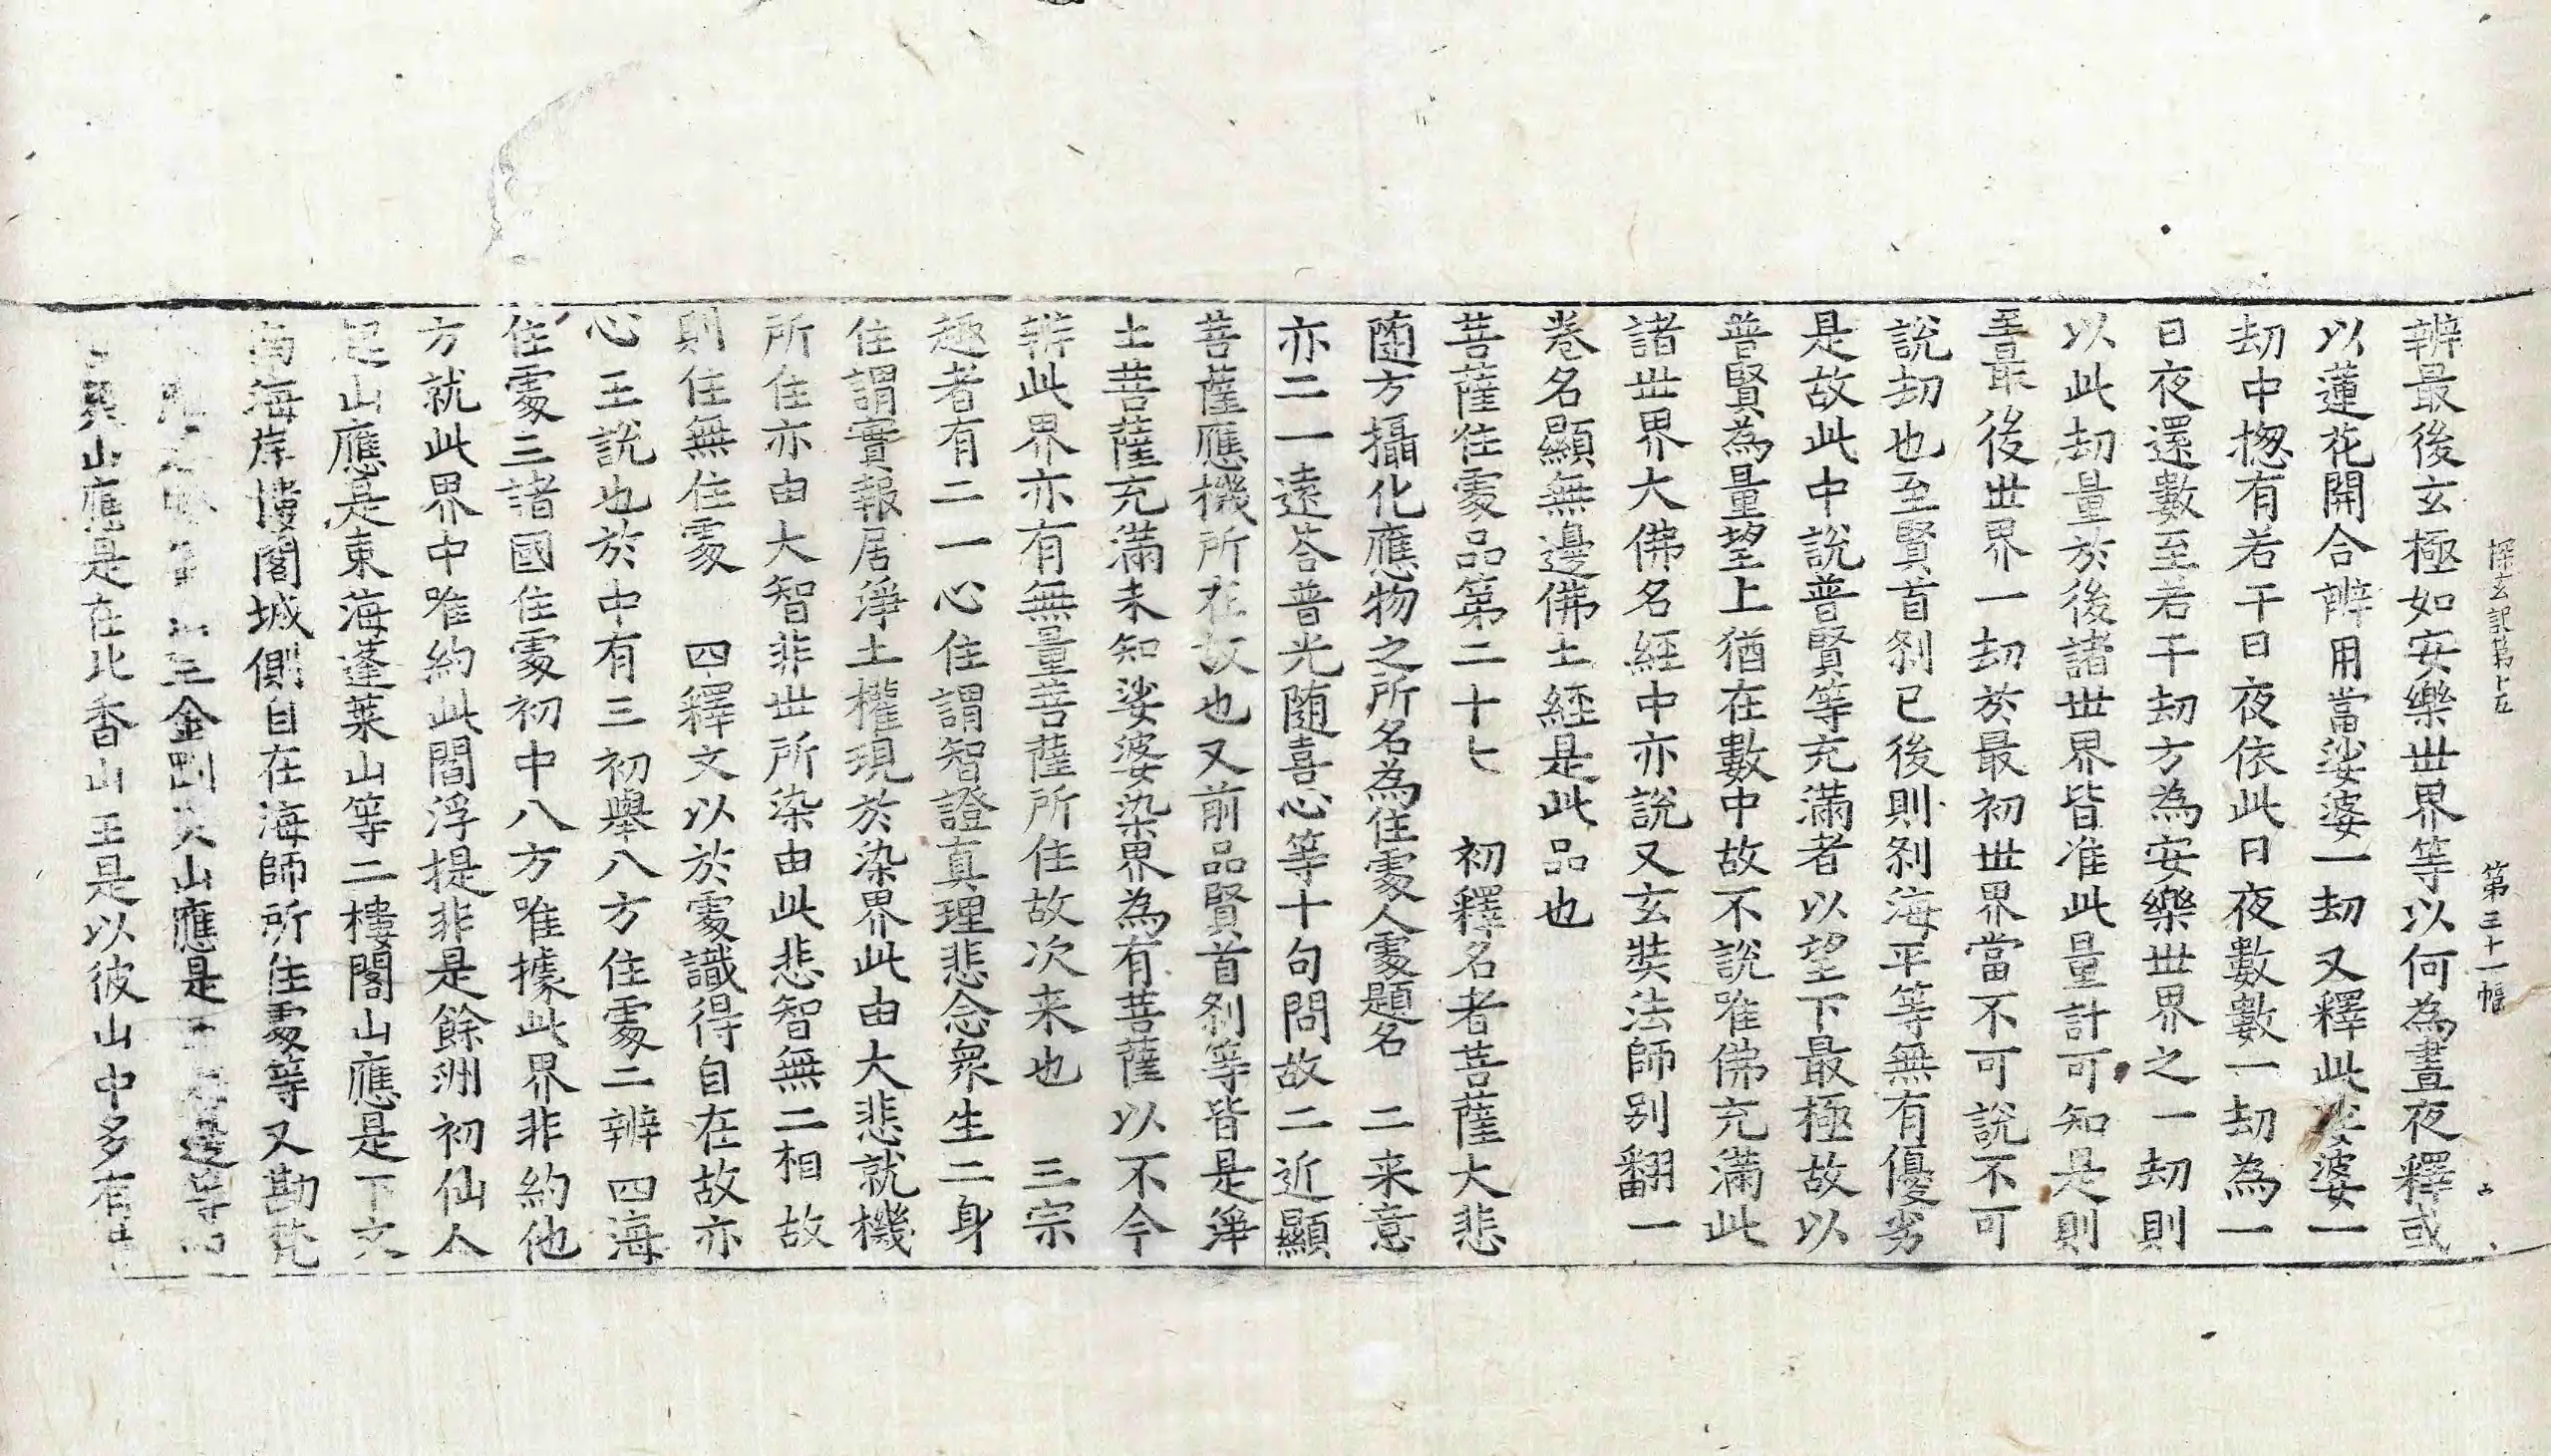 探玄記第十五　第三十一幅
辨最後玄極如安樂世界等以何為晝夜釋或
以蓮花開合辨用當娑婆一劫又釋此娑婆一
劫中揔有若干日夜依此日夜數數一劫為一
日夜還數至若干劫方為安樂世界之一劫則
以此劫量於後諸世界皆准此量計可知是則
至最後世界一劫於最初世界當不可說不可
說劫也至賢首刹已後則刹海平等無有優劣
是故此中說普賢等充滿者以望下最極故以
普賢為量望上猶在數中故不說唯佛充滿此
諸世界大佛名經中亦說又玄奘法師別翻一
卷名顯無邊佛土經是此品也
菩薩住處品第二十七　初釋名者菩薩大悲
随方攝化應物之所名為住處人處題名　二来意
亦二一遠荅普光随喜心等十句問故二近顯
菩薩應機所在故也又前品賢首刹等皆是淨
土菩薩充滿未知娑婆染界為有菩薩以不今
辨此界亦有無量菩薩所住故次来也　三宗
趣者有二一心住謂智證真理悲念衆生二身
住謂實報居淨土權現於染界此由大悲就機
所住亦由大智非世所染由此悲智無二相故
則住無住處　四釋文以於處識得自在故亦
心王說也於中有三初舉八方住處二辨四海
住處三諸國住處初中八方唯據此界非約他
方就此界中唯約此閻浮提非是餘洲初仙人
起山應是東海蓬萊山等二樓閣山應是下文
南海岸樓閣城側自在海師所住處等又勘梵
三金剛炎山應是邊等
山應是在北香山王是以彼山中多有